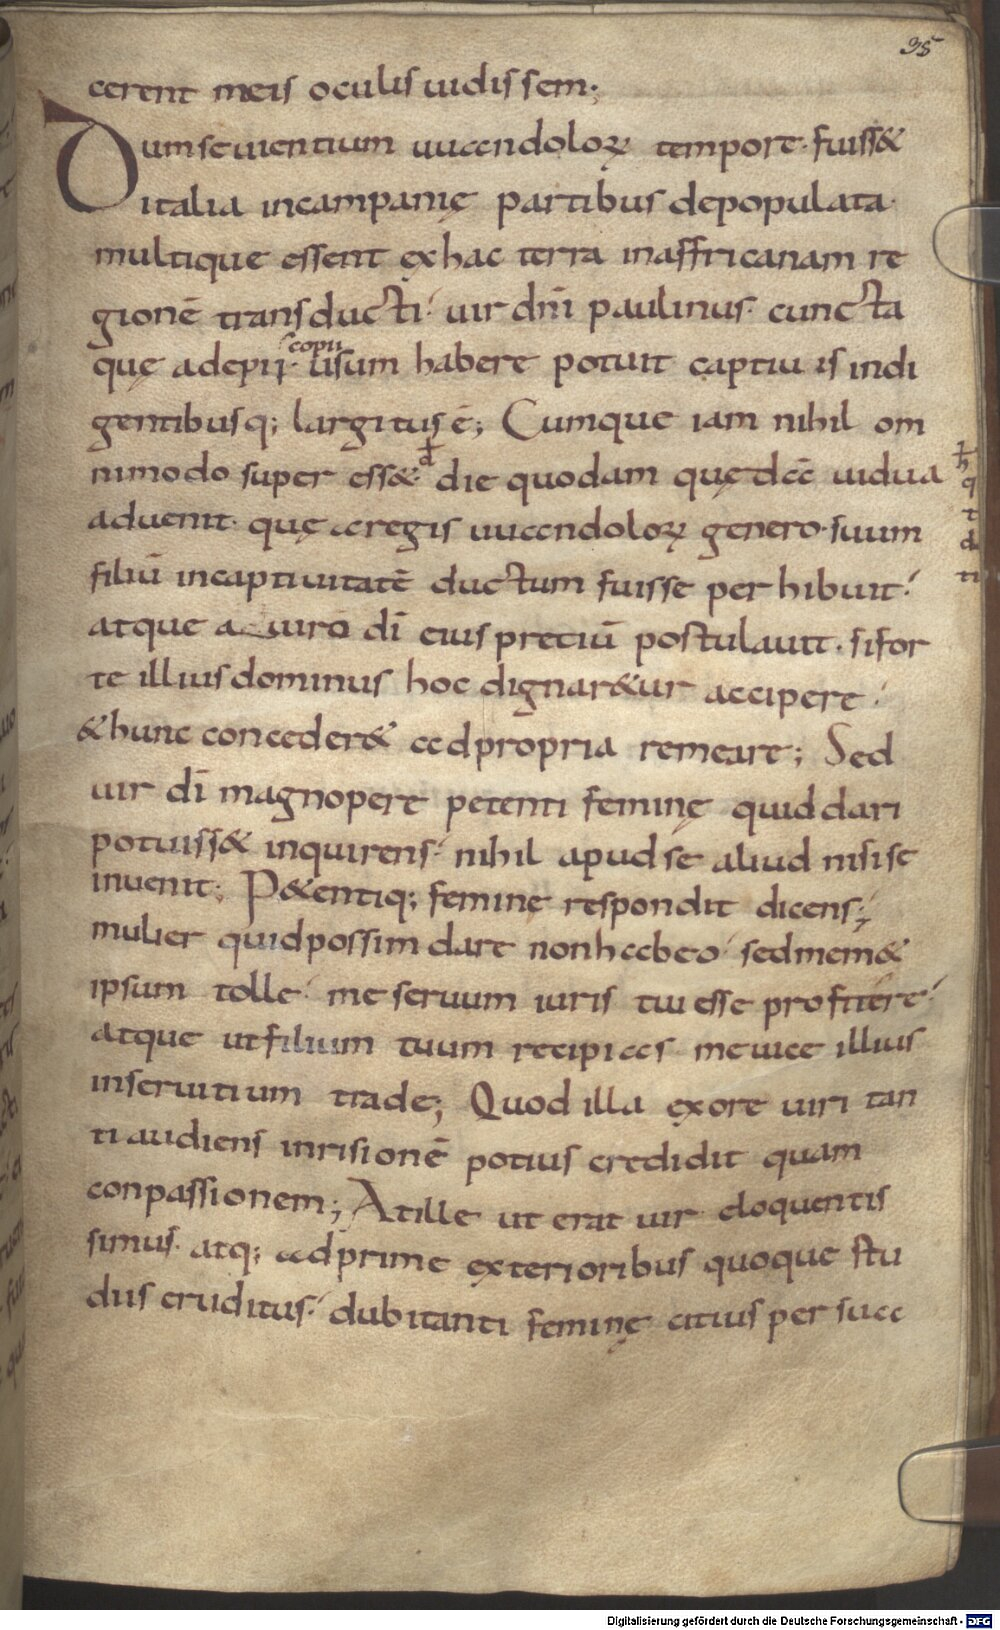 95
cerent meis oculis uidissem;
Dum seuientium uuandoloꝝ tempore· fuiss&
italia in campanię partibus depopulata·
multique essent ex hac terra in affricanam re
gionē transducti· uir dn̄i paulinus· cuncta
quę ad epi· scopii usum habere potuit captiuis indi
gentibusq; largitus ē; Cumque iam nihil om
nimodo super ess&· đ die quodam quędā uidua
aduenit· quę a regis uuandoloꝝ genero· suum
filiū in captiuitatē ductum fuisse perhibuit·
atque a uiro dī eius pretiū postulauit· si for
te illius dominus hoc dignar&ur accipere·
& hunc conceder& ad propria remeare; Sed
uir dī magnopere petenti feminę quid dari
potuiss& inquirens· nihil apud se aliud nisi se
inuenit; P&entiq; feminę respondit dicens;
mulier quid possim dare non habeo· sed mem&
ipsum tolle· me seruum iuris tui esse profitere·
atque ut filium tuum recipias me uice illius
in seruitium trade; Quod illa ex ore uiri tan
ti audiens inrisionē potius credidit quam
conpassionem; At ille ut erat uir eloquentis
simus· atq; adprime exterioribus quoque stu
diis eruditus· dubitanti feminę citius persua
Digitalisierung gefördert durch die Deutsche Forschungsgemeinschaft - DFG